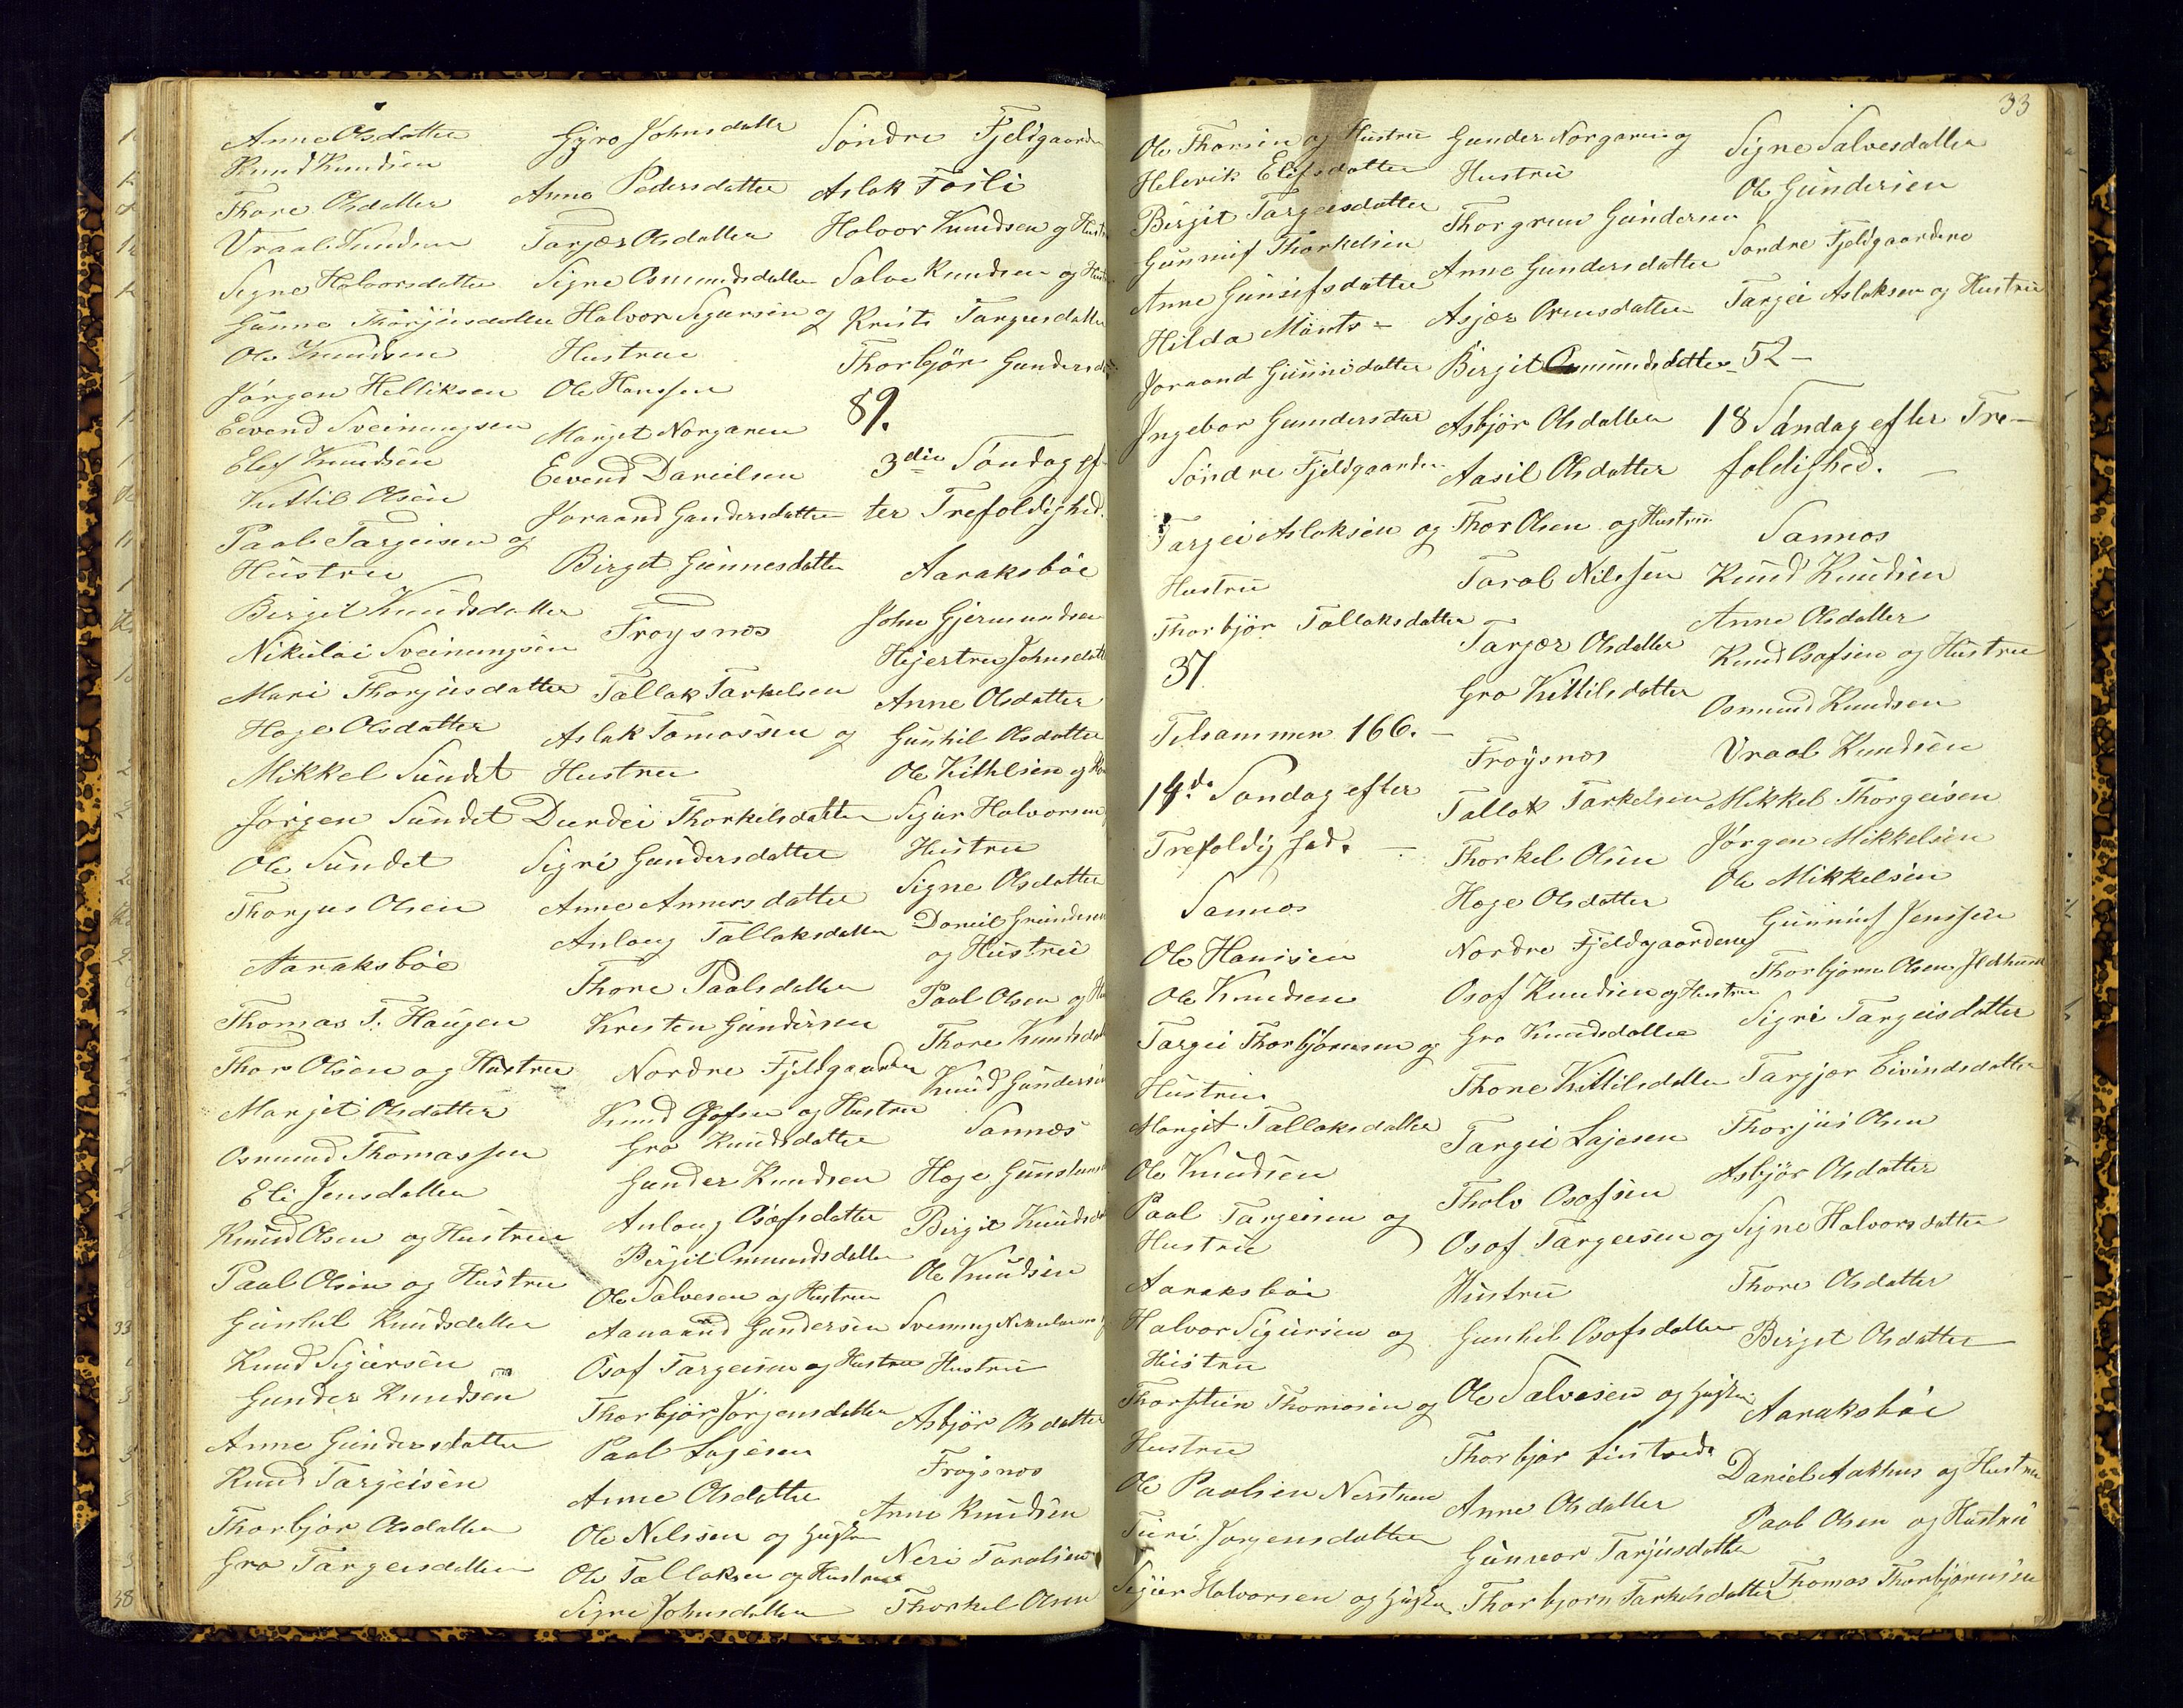 Anne Olsdatter
Knud Knudsen
Thore Olsdatter
Vraal Knudsen
Signe Halvorsdatter
Gunne Thorjusdatter
Ole Knudsen
Jørgen Helliksen
Eevend Sveinungsen
Elef Knudsen
Kittil Olsen
Paal Targeisen og
Hustru
Birgit Knudsdatter
Nikulai Sveinungsen
Mari Thorjusdatter
Hoge Olsdatter
Mikkel Sundet
Jørgen Sundet
Ole Sundet
Thorjus Olsen
Aaraksböe
Thomas T. Haugen
Thor Olsen og Hustru
Margit Olsdatter
Osmund Thomassen
Eli Jensdatter
Knud Olsen og Hustru
Paal Olsen og Hustru
Gunhil Knudsdatter
Knud Sigursen
Gunder Knudsen
Anne Gundersdatter
Knud Targeisen
Thorbjør Olsdatter
Gro Targeisdatter
Gyro Johnsdatter
Anne Pedersdatter
Tarjær Olsdatter
Signe Osmundsdatter
Halvor Sigursen og
Hustru
Ole Hansen
Margit Norgaren
Eevend Danielsen
Joraand Gundersdatter
Birgit Gunnesdatter
Froysnos
Tallak Tarkelsen
Aslak Tomassen og
Hustru
Durdei Thorkelsdatter
Sigri Gundersdatter
Anne Annersdatter
Anlaug Tallaksdatter
Thore Paalsdatter
Kristen Gundersen
Nordre Fjeldgaarden
Knud Osofsen og Hustru
Gro Knudsdatter
Gunder Knudsen
Anlaug Osofsdatter
Birgit Omundsdatter
Ole Salvesen og Hustru
Aanaand Gundersen
Osof Targeisen og Hustru
Thorbjør Jørgensdatter
Paal Lajesen
Anne Olsdatter
Ole Nilssen og Hustru
Ole Tallaksen og Hustru
Signe Johnsdatter
Söndre Fjeldgaarden
Aslak Tosli
Halvor Knudsen og Hustru
Salve Knudsen og
Kristi Targeisdatter
Thorbjör
89.
3die Söndag ef-
ter Trefoldighed.
Aaraksböe
John Gjermundsen
Hejertru Johnsdatter
Anne Olsdatter
Gunhil Olsdatter
Ole Kittilsen og
Sigur Halvorsen
Hustru
Signe Olsdatter
Daniel Gundersen
og Hustru
Paal Olsen og
Thore
Knud Gundersen
Sannes
Hoge
Birgit
Ole Knudsen
Sveinung
Hustru
Asbjör Olsdatter
Froysnos
Anne Knudsen
Neri Taralsen
Thorkel Olsen
33
Ole Thorsen og Hustru
Helevik Elefsdatter
Birgit Targeisdatter
Gunnuf Thorkelsen
Anne Gunufsdatter
Hilda Monts-
Joraand Gunnisdatter
Ingebor Gundersdat
Söndre Fjeldgaarden
Targei Aslaksen og
Hustru
Thorbjör Tallaksdatter
37
Tilsammen 166.
14de Søndag efter
Trefoldighed.
Sannos
Ole Hansen
Ole Knudsen
Targei Thorbjørnsen og
Hustru
Margit Tallaksdatter
Ole Knudsen
Paal Targeisen og
Hustru
Aaraksböe
Halvor Sigursen og
Hustru
Thorstein Thomassen og
Hustru
Ole Paalsen
Turi Jorgensdatter
Sigur Halvorsen og Hustru
Gunder Norgaren og
Hustru
Thorgrim Gundersen
Anne Gundersdatter
Asjær Ormsdatter
Birgit Osmundsdatter
Asbjör Olsdatter
Aasil Olsdatter
Thor Olsen og Hustru
Tarol Nilssen
Tarjær Olsdatter
Gro Kittilsdatter
Froysnos
Tallak Tarkelsen
Thorkel Olsen
Hoge Olsdatter
Nordre Fjeldgaardene
Osof Knudsen og Hustru
Gro Knudsdatter
Thone Kittilsdatter
Targei Lajesen
Tholv Osofsen
Osof Targeisen og
Hustru
Gunhil Osofsdatter
Ole Salvesen og Hustru
Thorbjør
Anne Olsdatter
Gunvor Tarjusdatter
Thorbjorn Tarkelsdatter
Signe Salvesdatter
Ole Gundersen
Søndre Fjeldgaardene
Targei Aslaksen og Hustru
52-
18 Søndag efter Tre-
foldighed.
Sannos
Knud Knudsen
Anne Olsdatter
Knud Osofsen og Hustru
Osmund Knudsen
Vraal Knudsen
Mikkel Thorgeisen
Jørgen Mikkelsen
Ole Mikkelsen
Gunnuf Jenssen
Thorbjørn Olsen
Sigri Targeisdatter
Targjør Eivindsdatter
Thorjus Olsen
Asbjör Olsdatter
Signe Halvorsdatter
Thore Olsdatter
Birgit Olsdatter
Aaraksböe
Daniel Aakhus og Hustru
Paal Olsen og Hustru
Thomas Thorbjørnsen
33
38